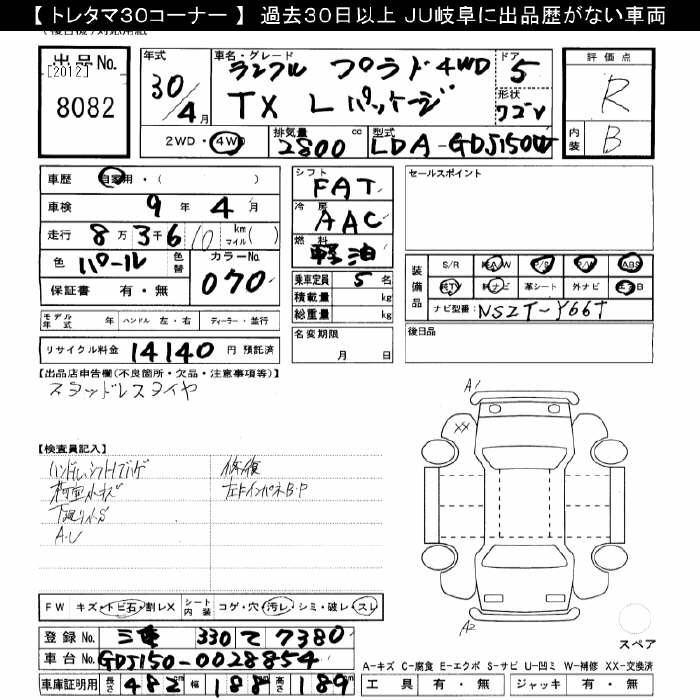 【 トレタマ30コーナー 】 過去30日以上 JU岐阜に出品歴がない車両
出品No.
[2012]
8082
年式
30/4月
車名・グレード
ランクル プラド4WD
TX Lパッケージ
ドア
5
形状
ワゴン
評価点
R
内装
B
2WD・4WD
排気量
2800 cc
型式
LDA-GDJ150W
車歴 自家用・( )
車検 9年 4月
走行 8万3千6 10 km マイル ( )
色 パール 色替
カラーNo. 070
保証書 有・無
シフト
FAT
冷房
AAC
燃料
軽油
乗車定員 5 名
積載量 kg
総重量 kg
セールスポイント
装備品
S/R 純A/W P/S P/W ABS
純TV 純ナビ 革シート 外ナビ エアB
ナビ型番: NSZT-Y66T
モデル年式 年 ハンドル 左・右 ディーラー・並行
名変期限
月 日
後日品
リサイクル料金 14140 円 預託済
【出品店申告欄(不良箇所・欠品・注意事項等)】
スタッドレスタイヤ
A1
XX
【検査員記入】
修復
荷室小キズ
左ドインパネB.P
A.U
A2
FW キズ・トビ石・割レX シート内装 コゲ・穴・汚レ・シミ・破レ・スレ
スペア
登録No. 三重 330 て 7380
車台No. GDJ150-0028854
A-キズ C-腐食 E-エクボ S-サビ U-凹ミ W-補修 XX-交換済
車庫証明用 長さ 482 幅 188 高さ 189
工具 有・無 ジャッキ 有・無